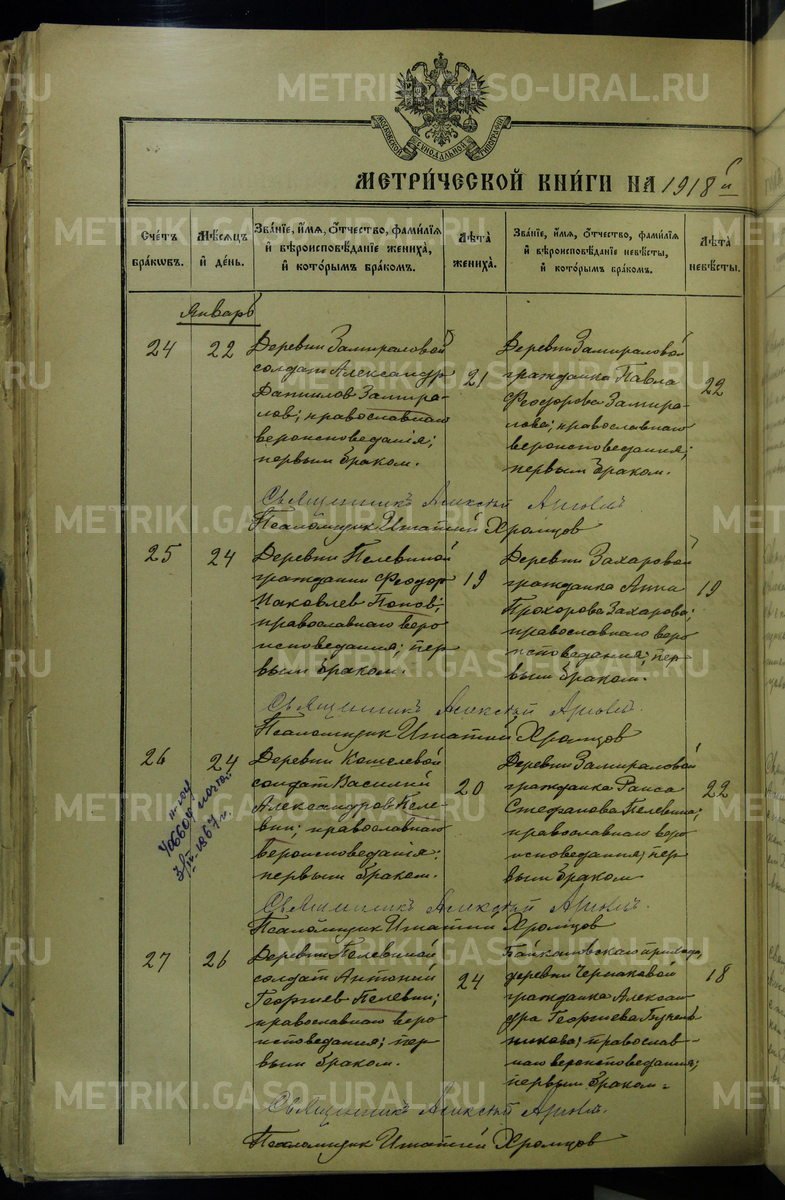 METRIKI.GASO-URAL.RU
МОСКОВСКОЙ СѴНОДАЛЬНОЙ ТИПОГРАФІИ
МЕТРИ́ЧЕСКОЙ КНИ́ГИ НА 1918й
Сче́тъ бра́кωвъ.
Мѣ́сяцъ и҆ де́нь.
Зва́нїе, и҆́мѧ, ѻ҆́тчество, фами́лїѧ
и҆ вѣроисповѣ́данїе жениха̀,
и҆ кото́рымъ бра́комъ.
Лѣ̑та̀ жениха̀.
Зва́нїе, и҆́мѧ, ѻ҆́тчество, фами́лїѧ
и҆ вѣроисповѣ́данїе невѣ́сты,
и҆ кото́рымъ бра́комъ.
Лѣ̑та̀ невѣ́сты.
Январь
24
22
Деревни Замираловой
солдат Александр
Данилов Замира-
лов; православнаго
вероисповеданія;
первым браком.
21
Деревни Замираловой
гражданка Павла
Феодорова Замира-
лова; православнаго
вероисповедания;
первым браком.
22
Священникъ Алексей
Псаломщик Игнатий Хромцов
25
24
Деревни Пелевиной
гражданин Феодор
Иаковлев Попов;
православнаго веро
исповедания; пер
вым браком.
19
Деревни Захаровой
гражданка Анна
Прохорова Захарова;
православнаго веро
исповедания; пер
вым браком.
19
Священникъ Алексей
Псаломщик Игнатий Хромцов
26
24
Деревни Кошелевой
солдат Василий
Александров Пеле-
вин; православнаго
вероисповеданія;
первым браком.
20
Деревни Замираловой
гражданка Раиса
Стефанова Пелевина;
православнаго веро
исповедания; пер
вым браком
22
Священникъ Алексей
Псаломщик Игнатий Хромцов
27
26
Деревни Пелевиной
солдат Антоний
Георгиев Пелевин;
православнаго веро
исповедания; пер
вым браком.
24
прихода,
деревни Черпаковой
гражданка Алексан
дра Георгиева
никова; православ-
наго вероисповедания;
первым браком.
18
Священникъ Алексей
Псаломщик Игнатий Хромцов